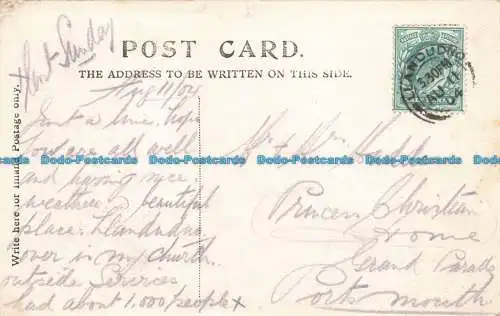 last Sunday
POST CARD.
THE ADDRESS TO BE WRITTEN ON THIS SIDE.
Write here for Inland Postage only.
LLANDUDNO
5.30PM
AU 11
04
Aug 11/04
Just a line, hope
you are all well
and having nice
weather, beautiful
place. Llandudno
over in my church
outside Services
had about 1,000 people x
Mr & Mrs
Princess Christian
Home
Grand Parade
Portsmouth
Dodo-Postcards Dodo-Postcards Dodo-Postcards Dodo-Postcards Dodo-Postcards
Dodo-Postcards Dodo-Postcards Dodo-Postcards Dodo-Postcards Dodo-Postcards